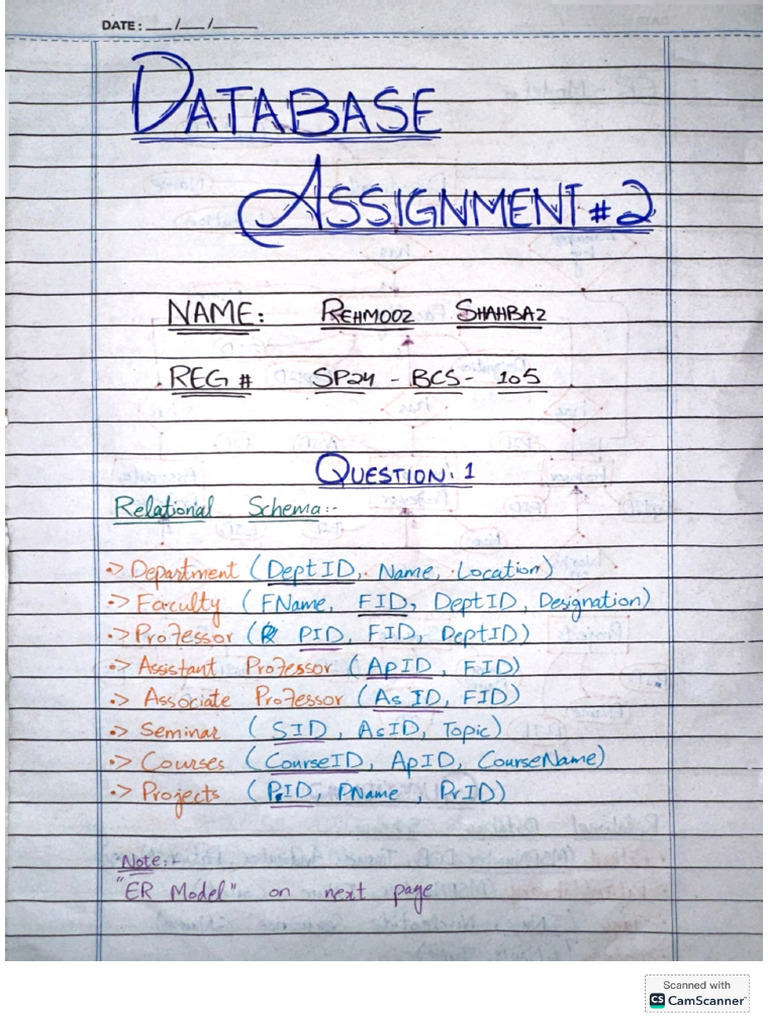 DATE: __/__/____
DATABASE
ASSIGNMENT #2
NAME: REHMOOZ SHAHBAZ
REG # SP24 - BCS - 105
QUESTION: 1
Relational Schema:-
·> Department (DeptID, Name, Location)
·> Faculty (FName, FID, DeptID, Designation)
·> Professor (PID, FID, DeptID)
·> Assistant Professor (ApID, FID)
·> Associate Professor (AsID, FID)
·> Seminar (SID, AsID, Topic)
·> Courses (CourseID, ApID, CourseName)
·> Projects (P.ID, PName, PrID)
Note:-
"ER Model" on next page
Scanned with
CS CamScanner